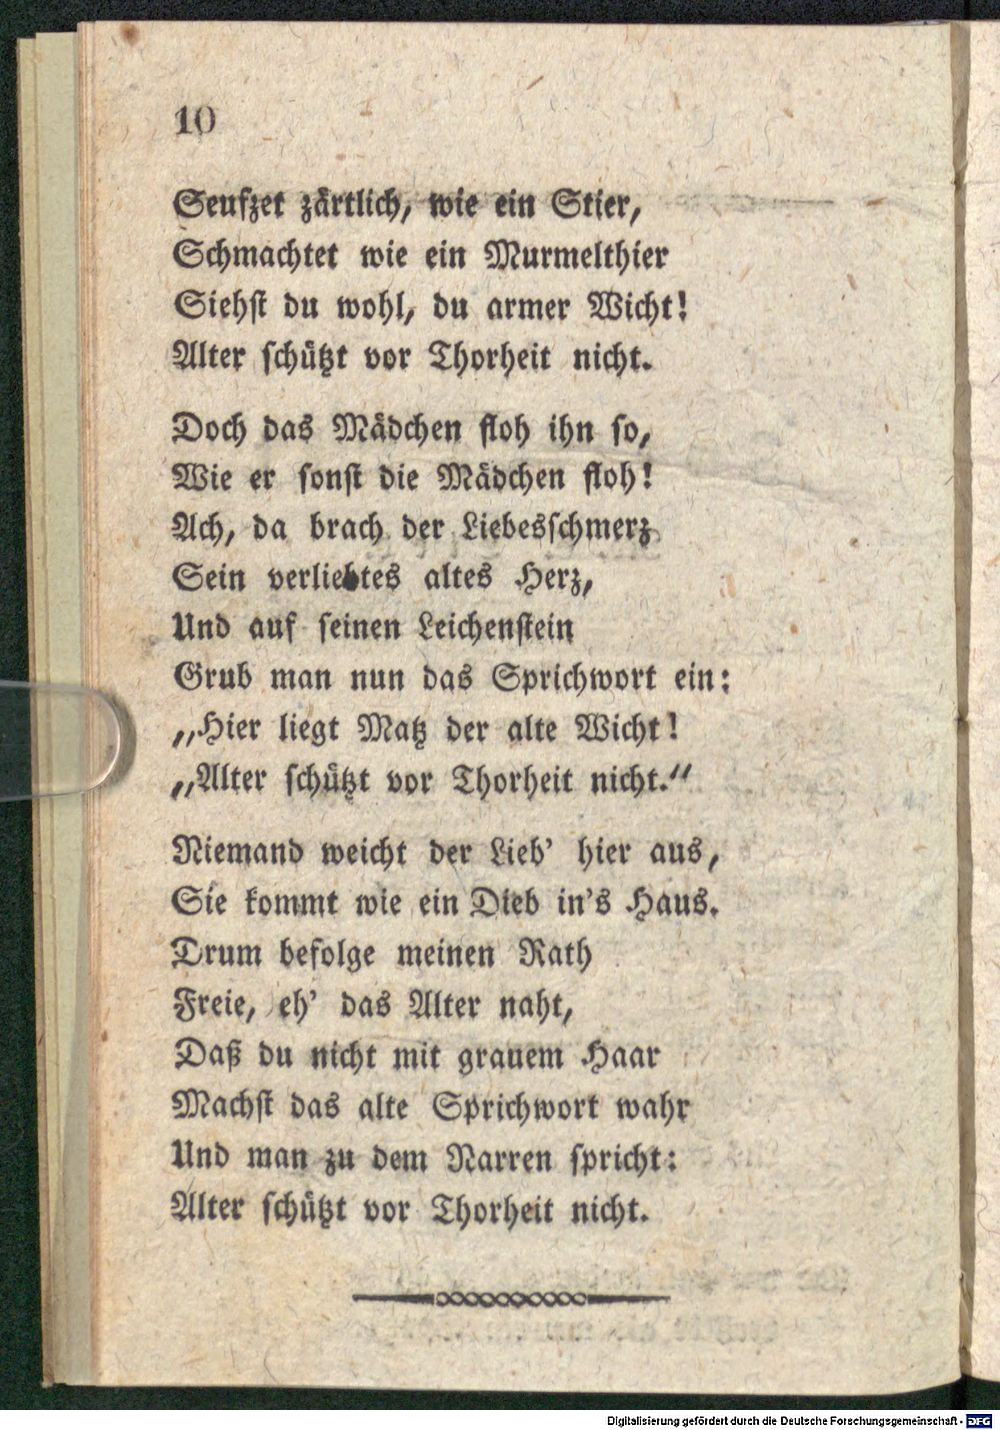 10
Seufzet zärtlich, wie ein Stier,
Schmachtet wie ein Murmelthier
Siehst du wohl, du armer Wicht!
Alter schützt vor Thorheit nicht.
Doch das Mädchen floh ihn so,
Wie er sonst die Mädchen floh!
Ach, da brach der Liebesschmerz
Sein verliebtes altes Herz,
Und auf seinen Leichenstein
Grub man nun das Sprichwort ein:
„Hier liegt Matz der alte Wicht!
„Alter schützt vor Thorheit nicht.“
Niemand weicht der Lieb’ hier aus,
Sie kommt wie ein Dieb in’s Haus.
Drum befolge meinen Rath
Freie, eh’ das Alter naht,
Daß du nicht mit grauem Haar
Machst das alte Sprichwort wahr
Und man zu dem Narren spricht:
Alter schützt vor Thorheit nicht.
Digitalisierung gefördert durch die Deutsche Forschungsgemeinschaft - DFG